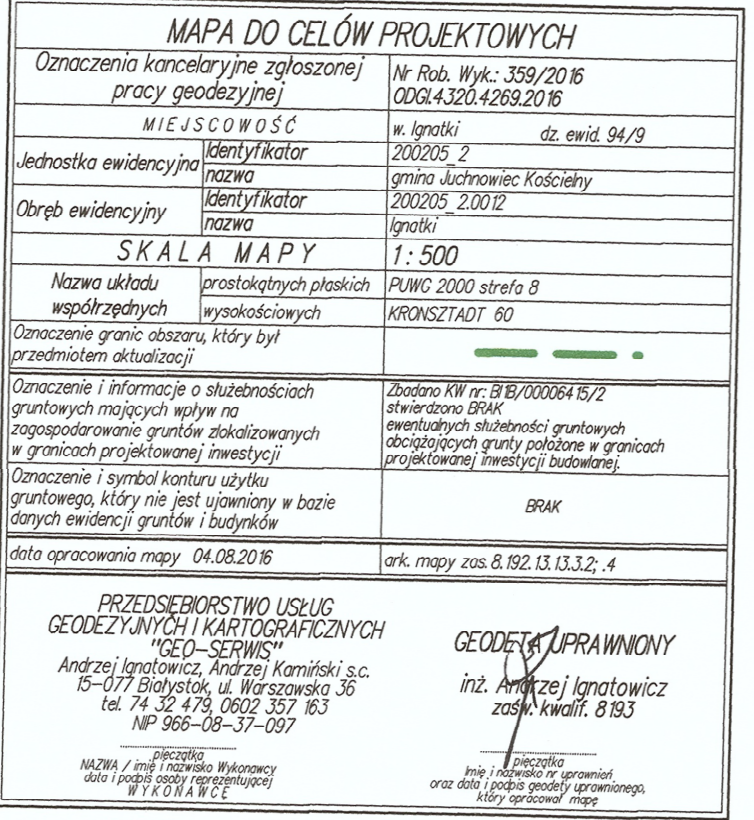 MAPA DO CELÓW PROJEKTOWYCH
Oznaczenia kancelaryjne zgłoszonej
pracy geodezyjnej
Nr Rob. Wyk.: 359/2016
ODGI.4320.4269.2016
MIEJSCOWOŚĆ
w. Ignatki dz. ewid. 94/9
Jednostka ewidencyjna
Identyfikator
200205_2
nazwa
gmina Juchnowiec Kościelny
Obręb ewidencyjny
Identyfikator
200205_2.0012
nazwa
Ignatki
SKALA MAPY
1:500
Nazwa układu
współrzędnych
prostokątnych płaskich
PUWG 2000 strefa 8
wysokościowych
KRONSZTADT 60
Oznaczenie granic obszaru, który był
przedmiotem aktualizacji
Oznaczenie i informacje o służebnościach
gruntowych mających wpływ na
zagospodarowanie gruntów zlokalizowanych
w granicach projektowanej inwestycji
Zbadano KW nr: BI1B/00006415/2
stwierdzono BRAK
ewentualnych służebności gruntowych
obciążających grunty położone w granicach
projektowanej inwestycji budowlanej.
Oznaczenie i symbol konturu użytku
gruntowego, który nie jest ujawniony w bazie
danych ewidencji gruntów i budynków
BRAK
data opracowania mapy 04.08.2016
ark. mapy zas. 8.192.13.13.3.2; .4
PRZEDSIĘBIORSTWO USŁUG
GEODEZYJNYCH I KARTOGRAFICZNYCH
"GEO-SERWIS"
Andrzej Ignatowicz, Andrzej Kamiński s.c.
15-077 Białystok, ul. Warszawska 36
tel. 74 32 479, 0602 357 163
NIP 966-08-37-097
pieczątka
NAZWA / imię i nazwisko Wykonawcy
data i podpis osoby reprezentującej
WYKONAWCĘ
GEODETA UPRAWNIONY
inż. Andrzej Ignatowicz
zaśw. kwalif. 8193
pieczątka
Imię i nazwisko nr uprawnień
oraz data i podpis geodety uprawnionego,
który opracował mapę